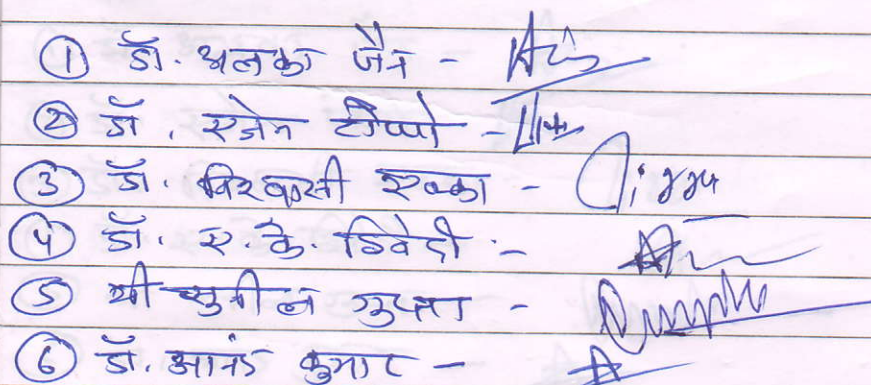 ① डॉ. अलका जैन -
② डॉ. एजेन टोप्पो -
③ डॉ. विश्वासी एक्का -
④ डॉ. ए. के. द्विवेदी -
⑤ श्री सुनील गुप्ता -
⑥ डॉ. आनंद कुमार -